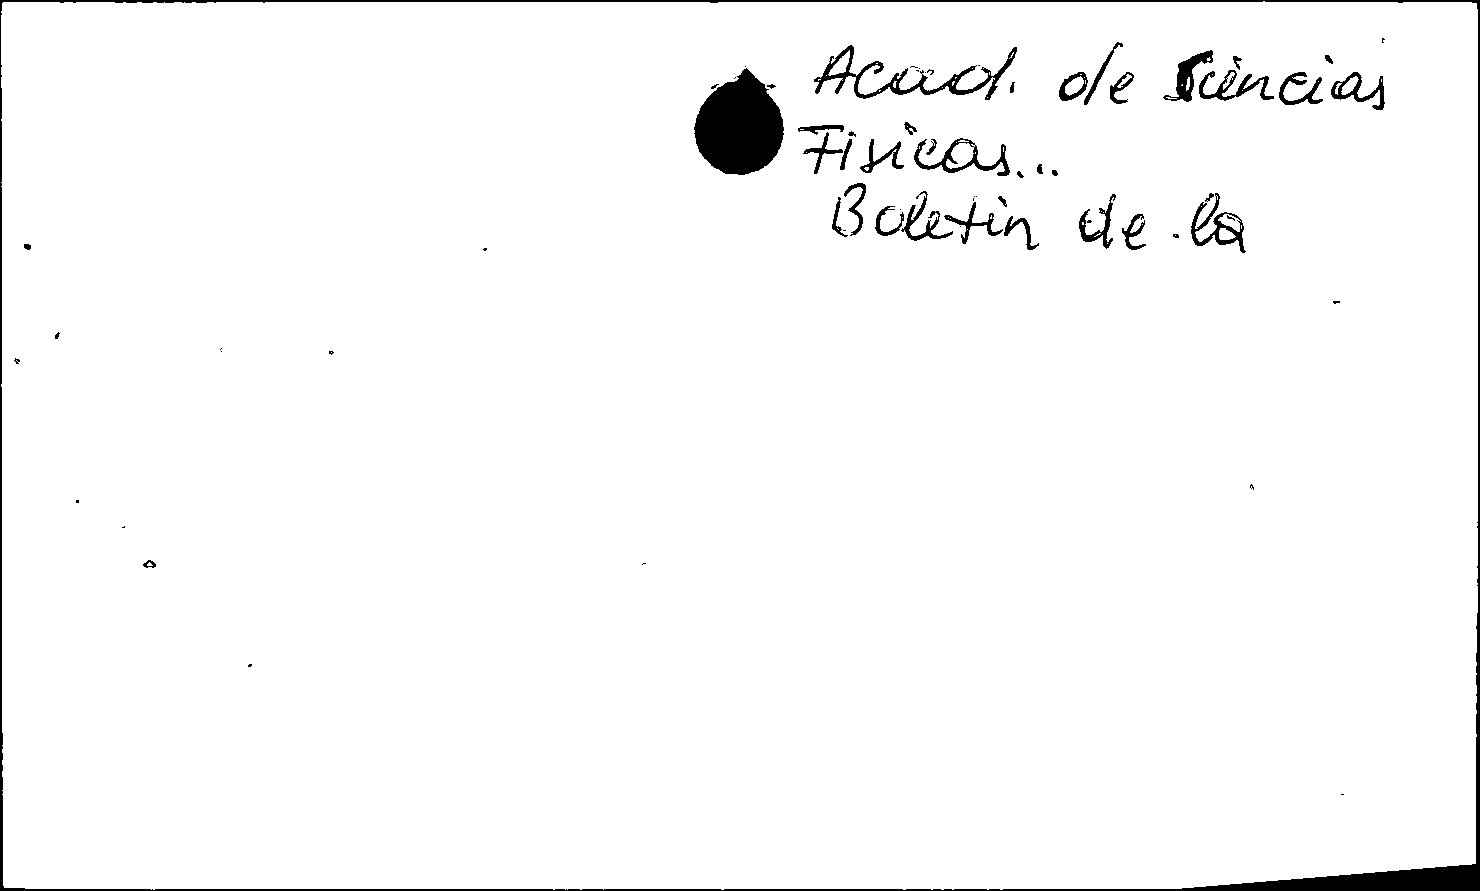 Acad. de Ciencias
Fisicas...
Boletin de la